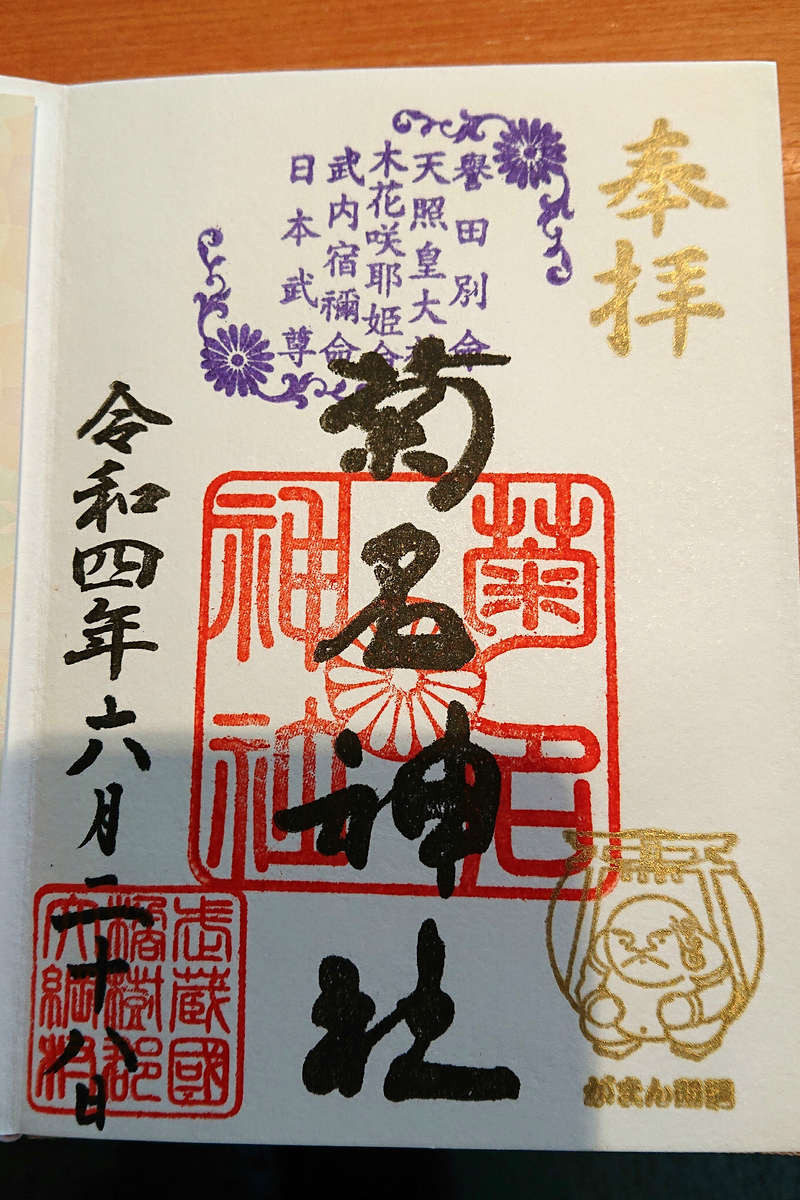 奉拝
譽田別命
天照皇大神
木花咲耶姫命
武内宿禰命
日本武尊
菊名神社
菊名
神社
令和四年六月二十八日
武蔵國
橘樹郡
がまん様